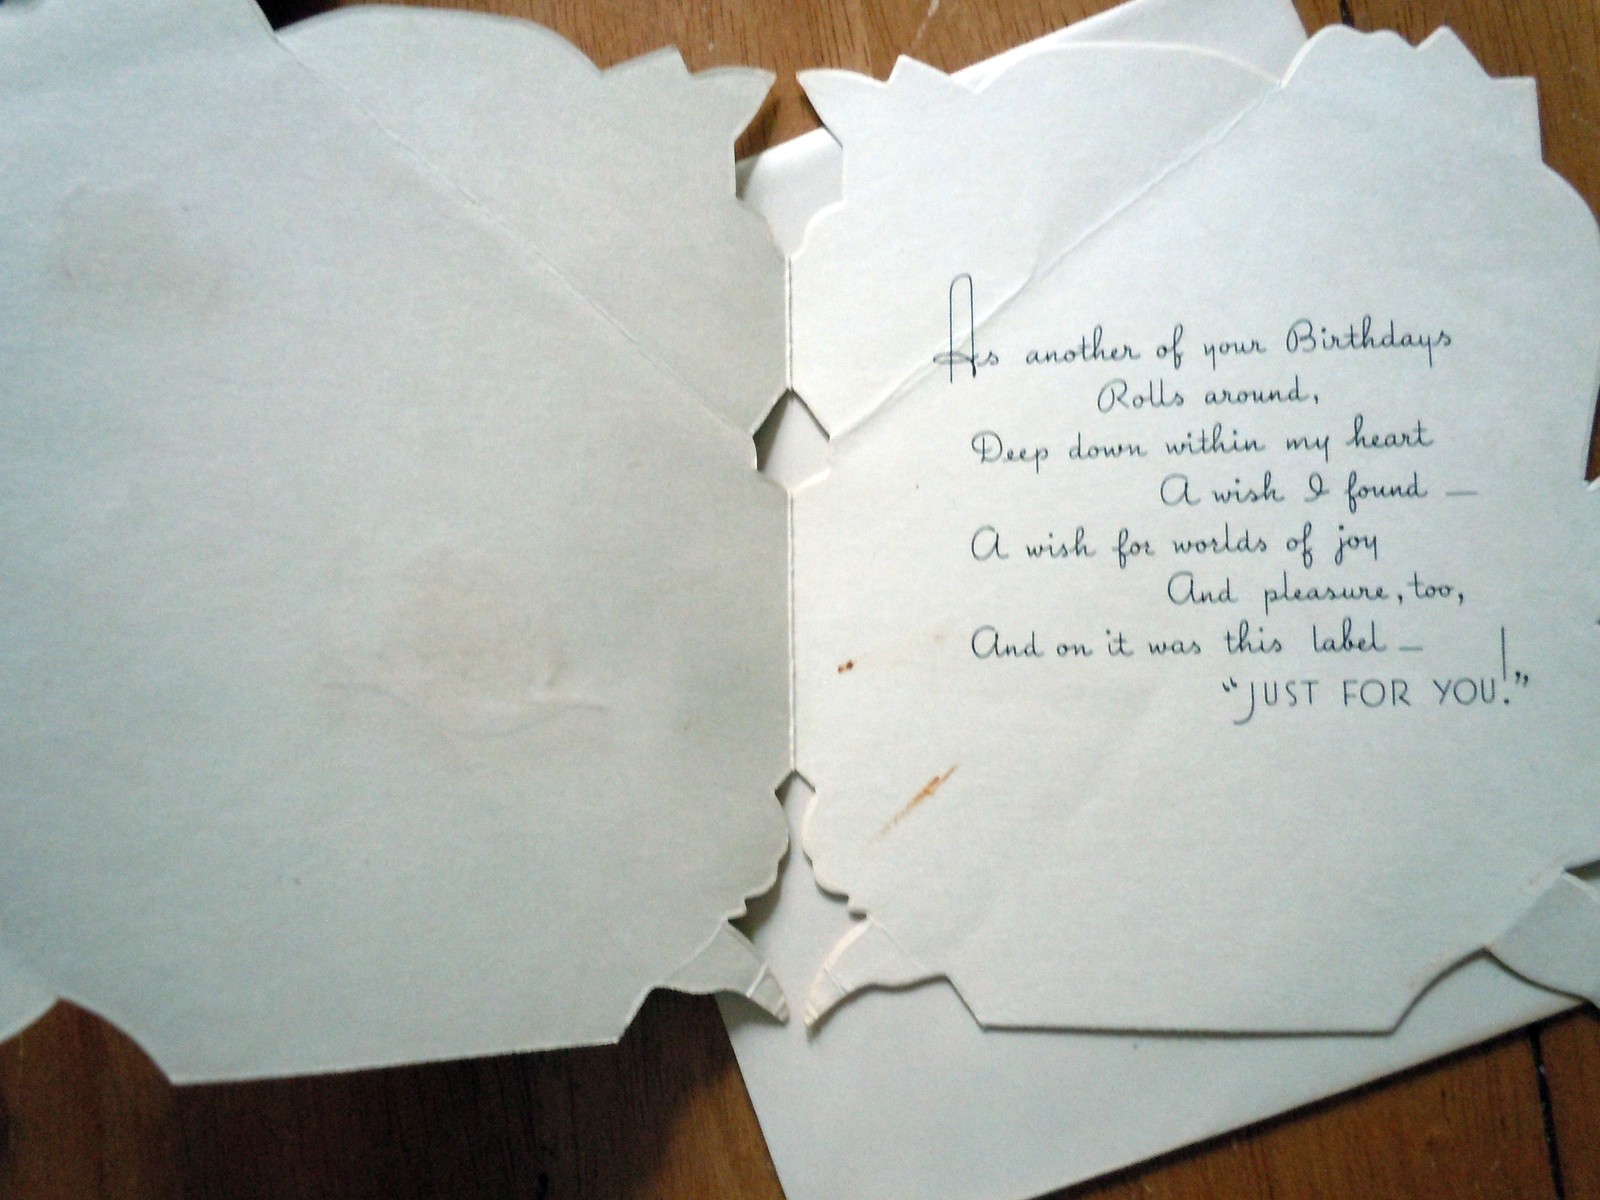 As another of your Birthdays
Rolls around,
Deep down within my heart
A wish I found —
A wish for worlds of joy
And pleasure, too,
And on it was this label —
“JUST FOR YOU!”